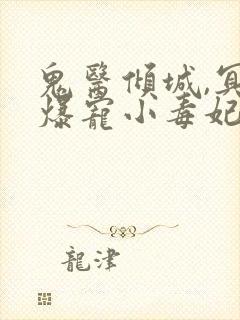 鬼醫傾城,冥
爆寵小毒妃
龍津